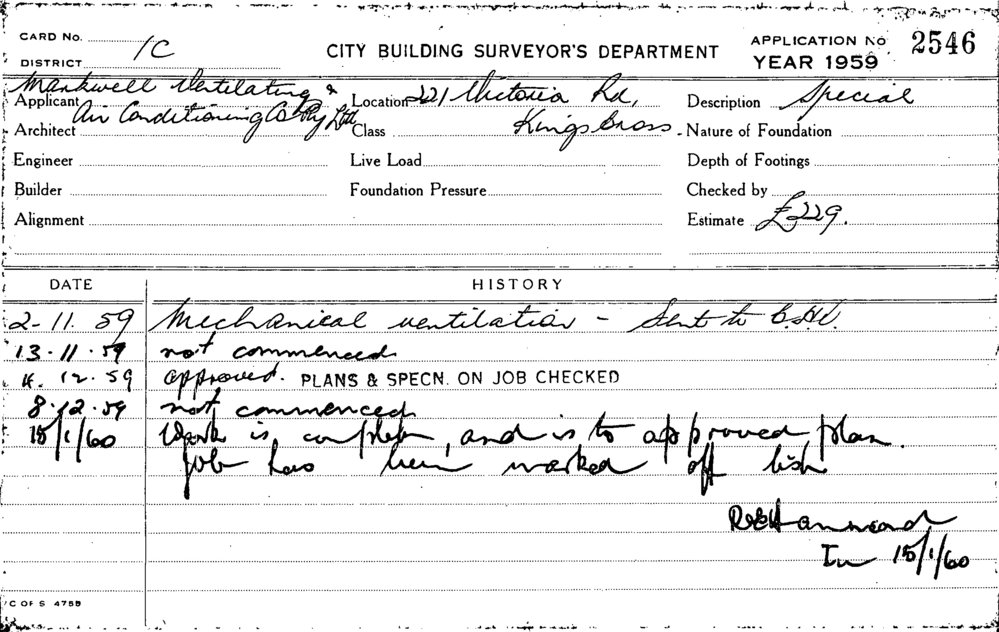 CARD No. CITY BUILDING SURVEYOR'S DEPARTMENT APPLICATION No 2546
DISTRICT 1C YEAR 1959
Markwell Ventilating &
Applicant Air Conditioning Co Pty Ltd Location 221 Victoria Rd, Description Special
Architect Class Kings Cross. Nature of Foundation
Engineer Live Load Depth of Footings
Builder Foundation Pressure Checked by
Alignment Estimate £229.
DATE HISTORY
2-11.59 Mechanical ventilation - Sent to
13.11.59 not commenced
4.12.59 approved. PLANS & SPECN. ON JOB CHECKED
8.12.59 not commenced
15/1/60 Work is complete, and is to approved plan.
job has been marked off list
Hammond
15/1/60
C OF S 4758